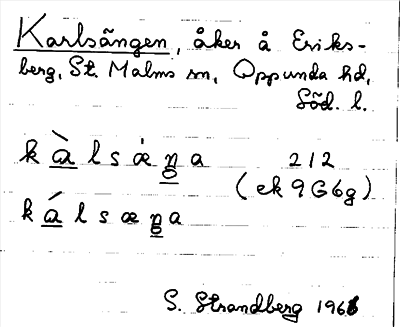 Karlsängen, åker å Eriks-
berg, St. Malms sn, Oppunda hd,
Söd. l.
k à l s æ n a 212
(ek 9G6g)
k á l s æ n a
S. Strandberg 1961